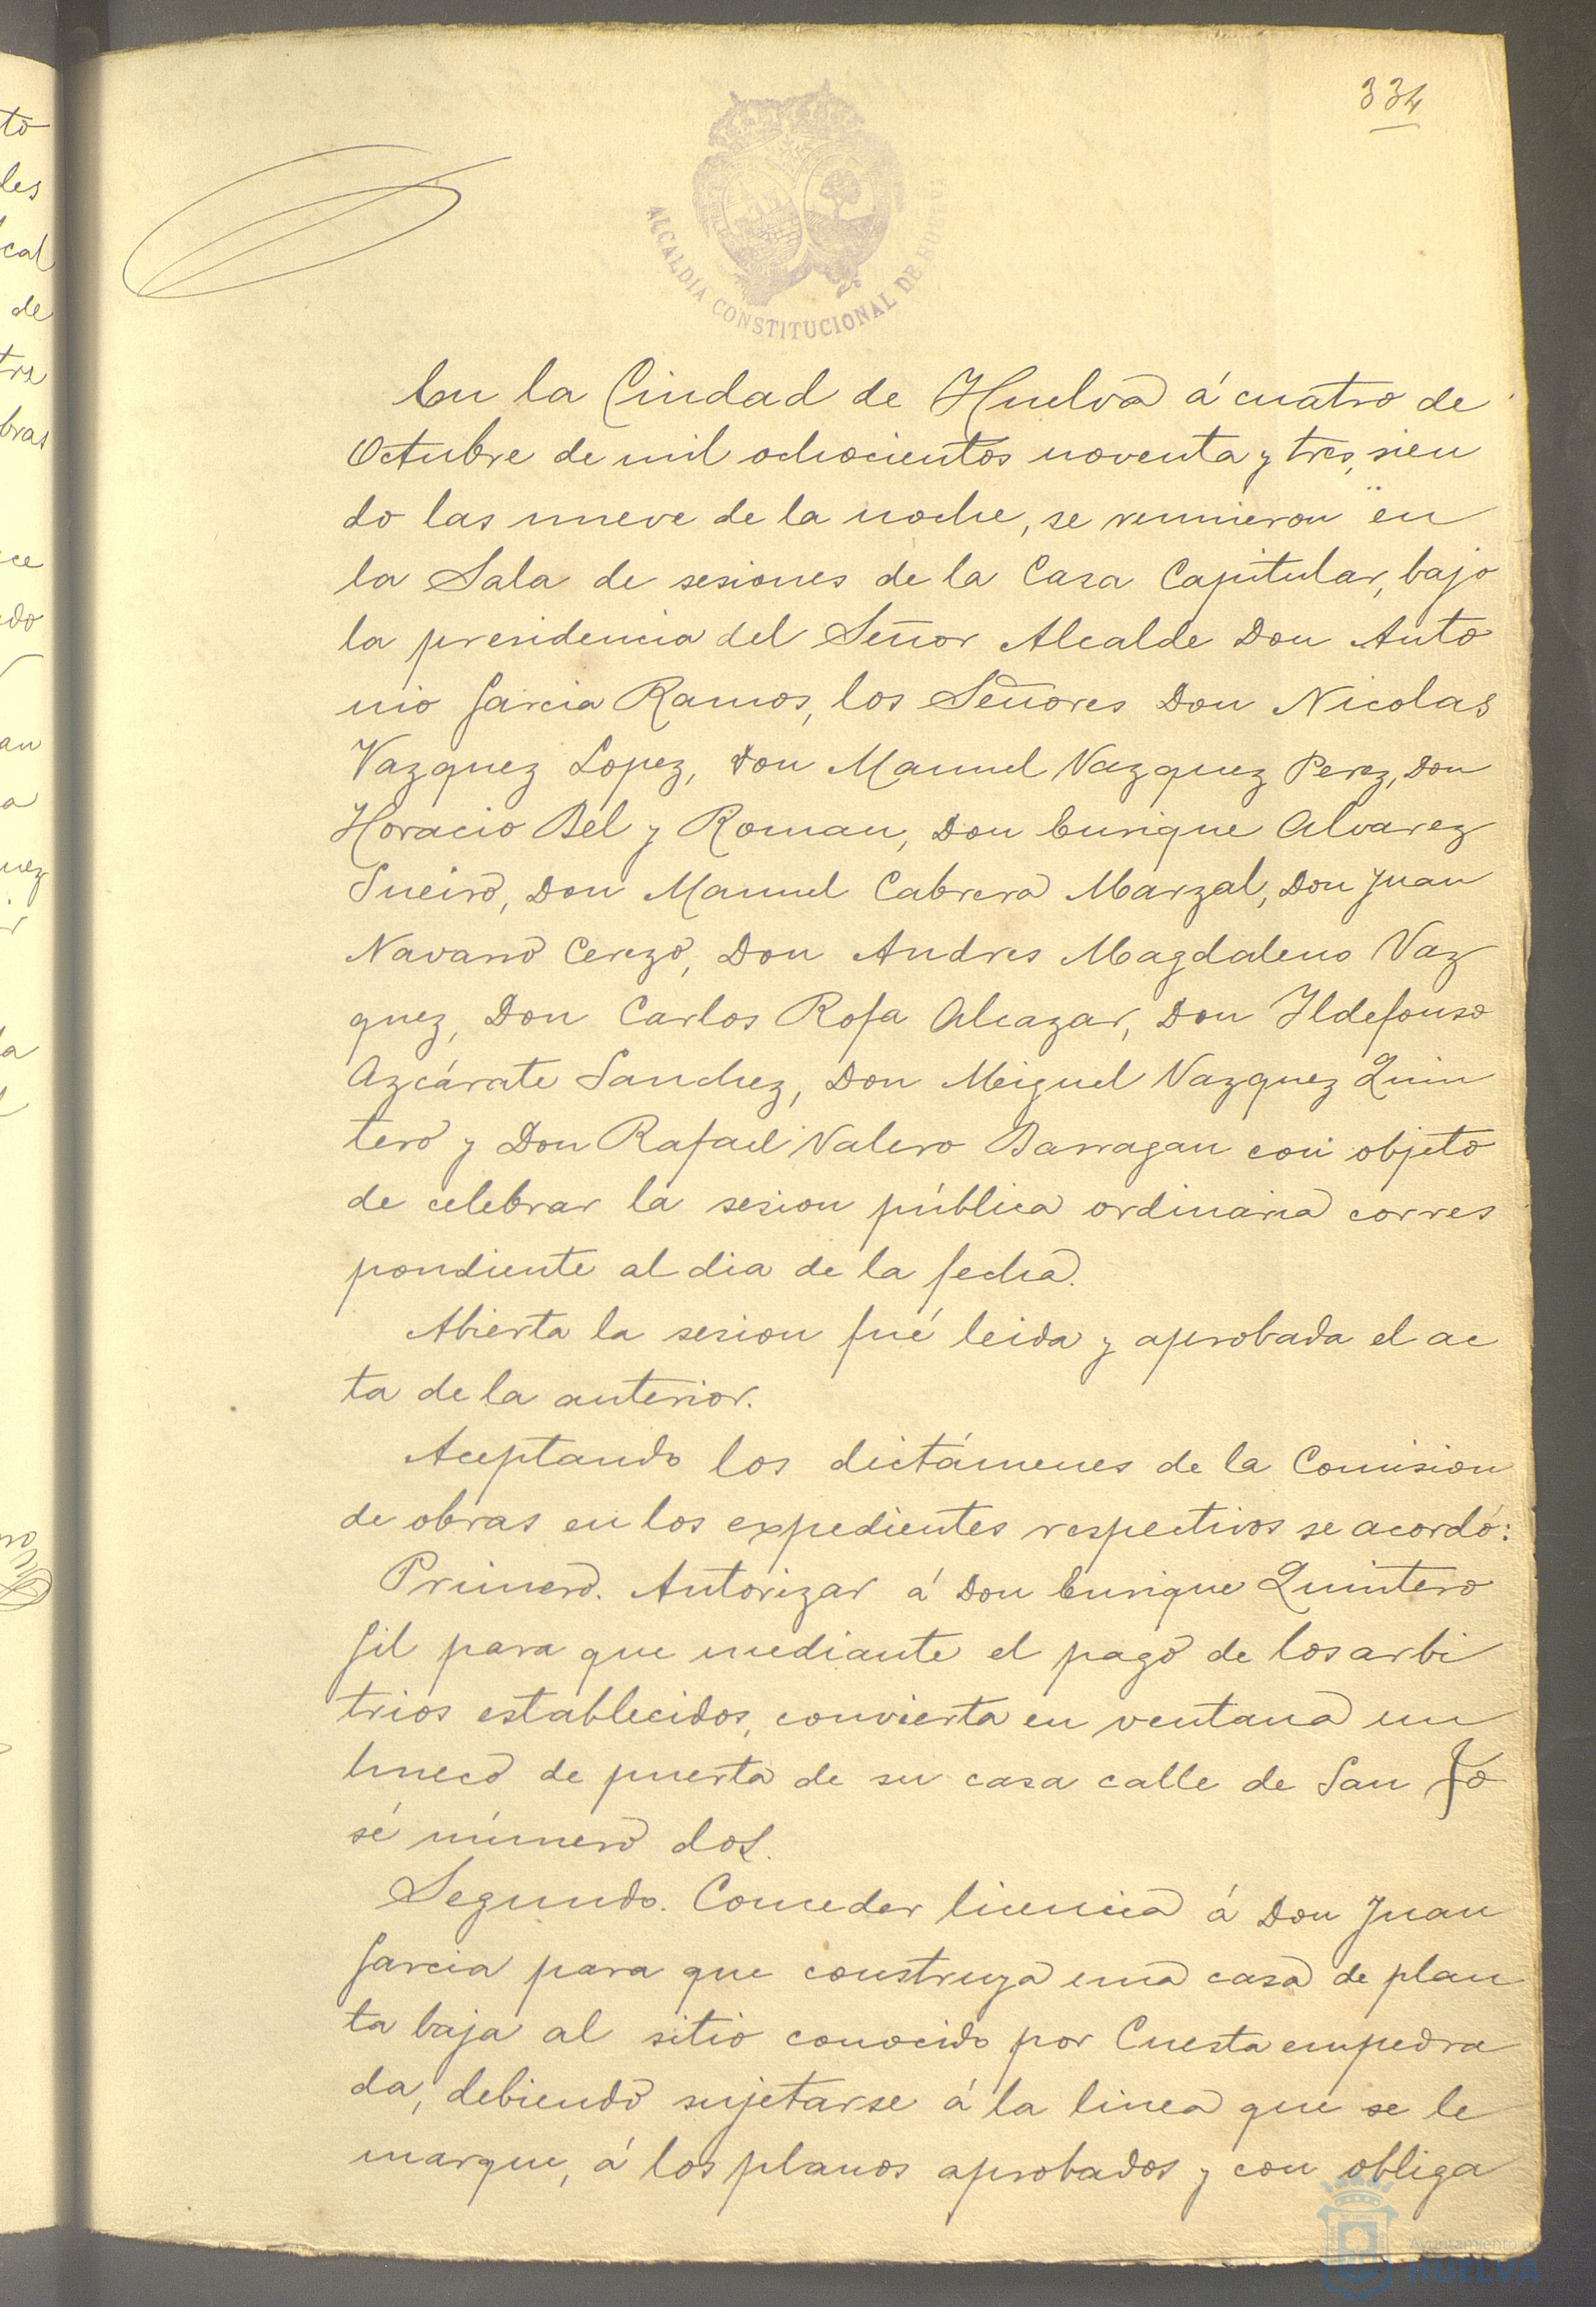 334
ALCALDIA CONSTITUCIONAL DE HUELVA
En la Ciudad de Huelva á cuatro de
Octubre de mil ochocientos noventa y tres, sien
do las nueve de la noche, se reunieron en
la Sala de sesiones de la Casa Capitular, bajo
la presidencia del Señor Alcalde Don Anto
nio Garcia Ramos, los Señores Don Nicolas
Vazquez Lopez, Don Manuel Vazquez Perez, Don
Horacio Bel y Roman, Don Enrique Alvarez
Sueiro, Don Manuel Cabrera Marzal, Don Juan
Navarro Cerezo, Don Andres Magdaleno Vaz
quez, Don Carlos Rofa Alcazar, Don Ildefonso
Azcárate Sanchez, Don Miguel Vazquez Quin
tero y Don Rafael Valero Barragan con objeto
de celebrar la sesion pública ordinaria corres
pondiente al dia de la fecha.
Abierta la sesion fué leida y aprobada el ac
ta de la anterior.
Aceptando los dictámenes de la Comision
de obras en los expedientes respectivos se acordó:
Primero. Autorizar á Don Enrique Quintero
Gil para que mediante el pago de los arbi
trios establecidos, convierta en ventana un
hueco de puerta de su casa calle de San Jo
sé número dos.
Segundo. Conceder licencia á Don Juan
Garcia para que construya una casa de plan
ta baja al sitio conocido por Cuesta empedra
da, debiendo sujetarse á la linea que se le
marque, á los planos aprobados y con obliga
Ayuntamiento de
HUELVA